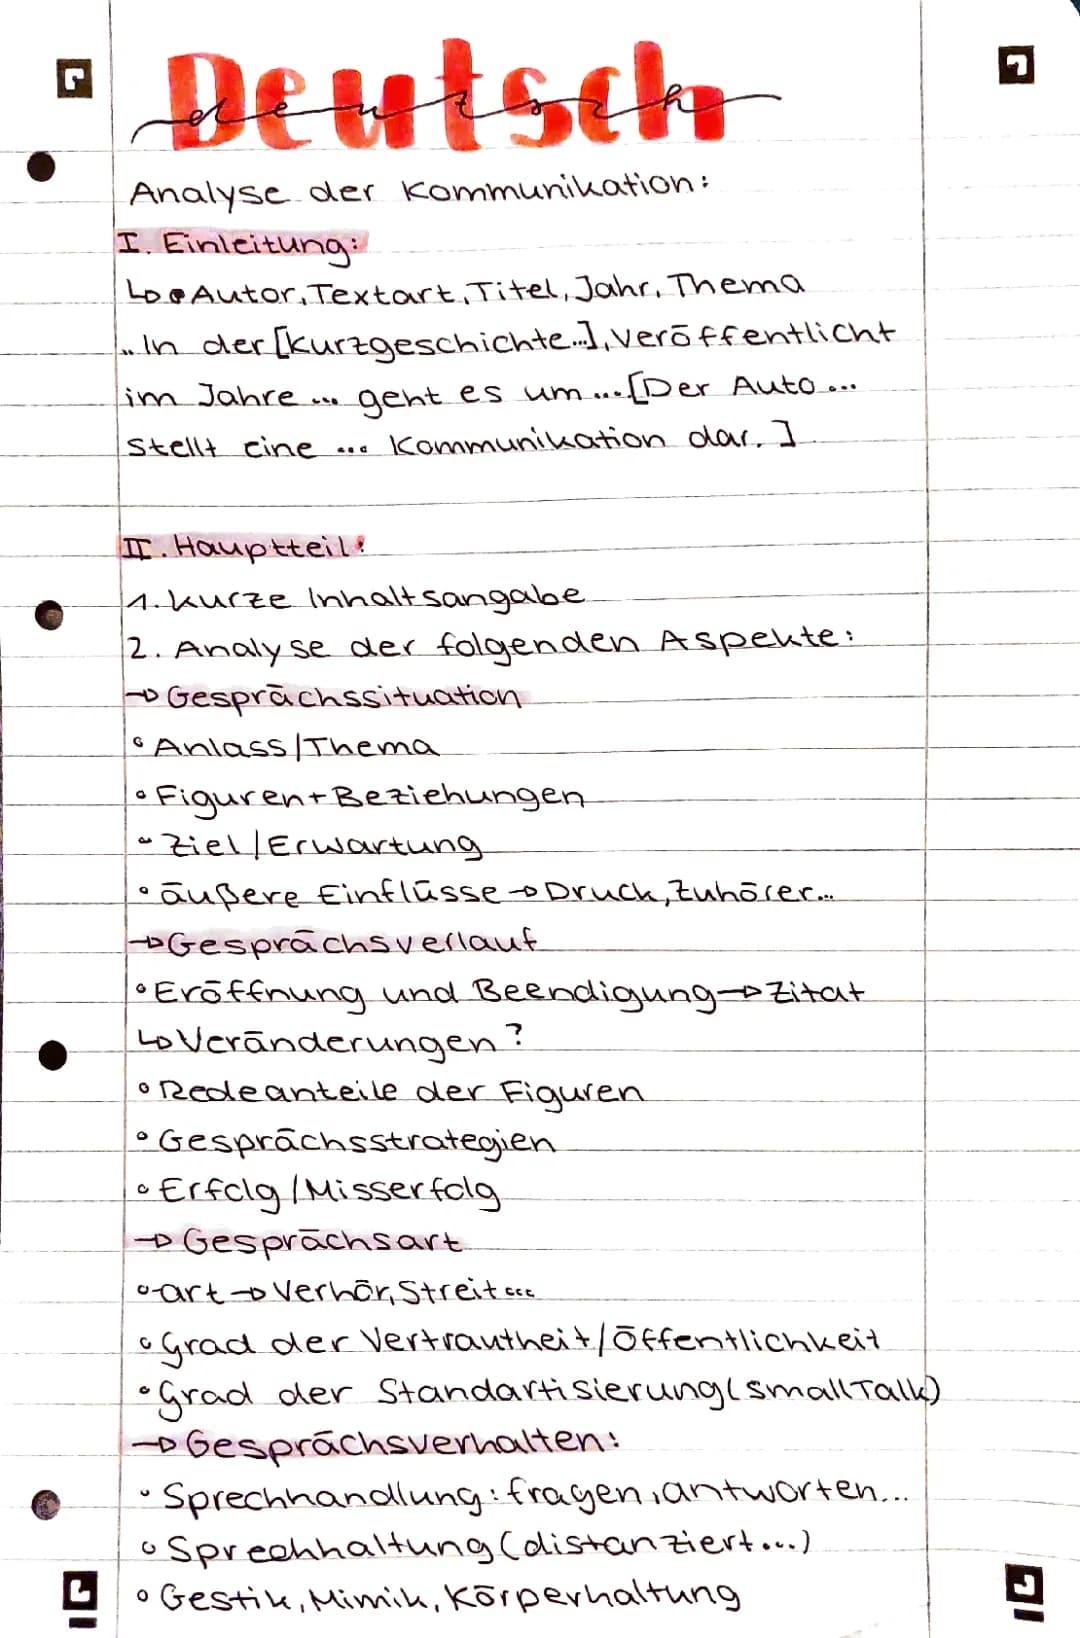 Deutsch
deutsch
Analyse der Kommunikation:
I. Einleitung:
Autor, Textart, Titel, Jahr, Thema
"In der [Kurzgeschichte...], veröffentlicht
im Jahre ... geht es um ... [Der Auto ...
stellt eine ... Kommunikation dar.]
II. Hauptteil:
1. kurze Inhaltsangabe
2. Analyse der folgenden Aspekte:
→ Gesprächssituation
• Anlass/Thema
• Figuren + Beziehungen
• Ziel/Erwartung
• äußere Einflüsse → Druck, Zuhörer...
→ Gesprächsverlauf
• Eröffnung und Beendigung → Zitat
↳ Veränderungen?
• Redeanteile der Figuren
• Gesprächsstrategien
• Erfolg/Misserfolg
→ Gesprächsart
• -art → Verhör, Streit ...
• Grad der Vertrautheit/Öffentlichkeit
• Grad der Standartisierung (small Talk)
→ Gesprächsverhalten:
• Sprechhandlung: fragen, antworten...
• Sprechhaltung (distanziert...)
• Gestik, Mimik, Körperhaltung